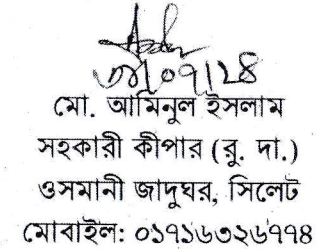 ৩১/০৭/২৪
মো. আমিনুল ইসলাম
সহকারী কীপার (রু. দা.)
ওসমানী জাদুঘর, সিলেট
মোবাইল: ০১৭১৬৩২৬৭৭৪